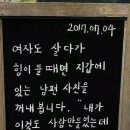 2017.07.04
여자도 살다가
힘이 들때면 지갑에
있는 남편 사진을
꺼내봅니다. "내가
이것도 사람만들었는데